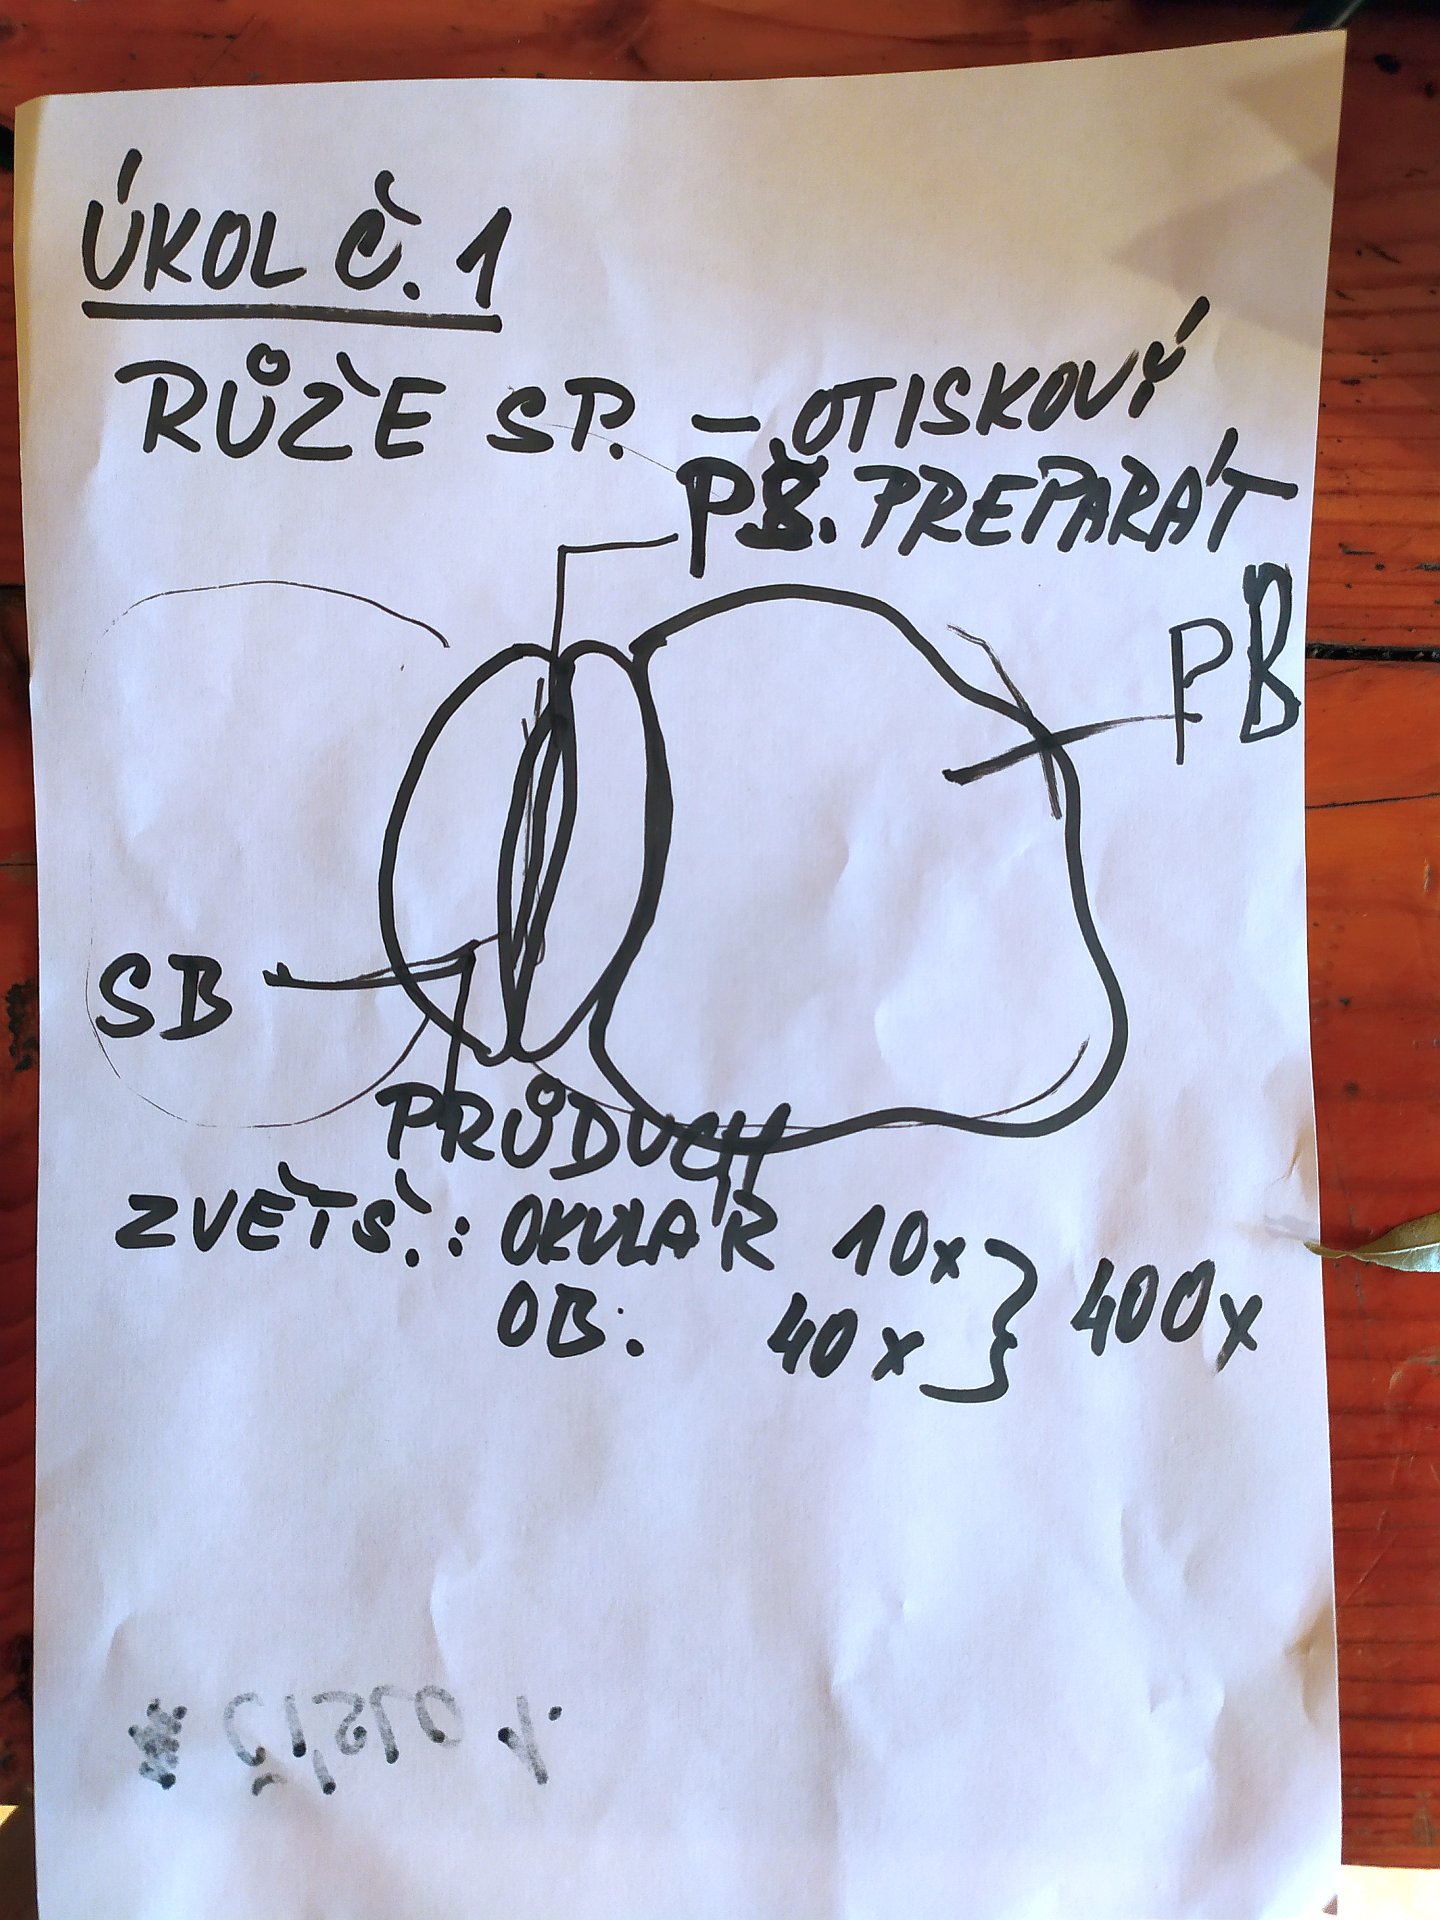 ÚKOL Č. 1
RŮŽE SP. – OTISKOVÝ
PŠ. PREPARÁT
PB
SB
PRŮDUCH
ZVĚTŠ.: OKULÁR 10x } 400x
OB: 40x
ČÍSLO 1.